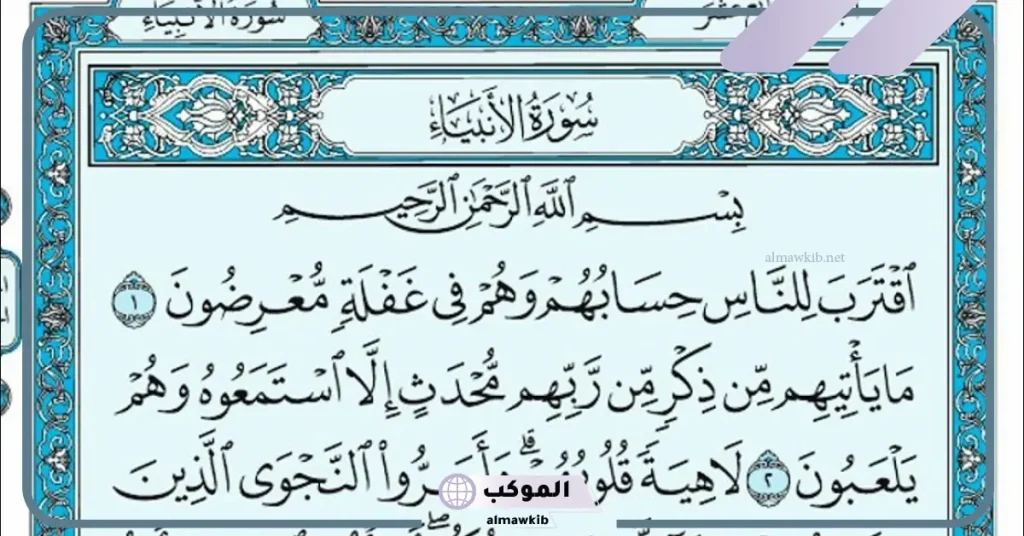 سُورَةُ الأَنْبِيَاءِ
سُورَةُ الأَنْبِيَاءِ
بِسْمِ ٱللَّهِ ٱلرَّحْمَٰنِ ٱلرَّحِيمِ
almawkib.net
ٱقْتَرَبَ لِلنَّاسِ حِسَابُهُمْ وَهُمْ فِى غَفْلَةٍ مُّعْرِضُونَ ١
مَا يَأْتِيهِم مِّن ذِكْرٍ مِّن رَّبِّهِم مُّحْدَثٍ إِلَّا ٱسْتَمَعُوهُ وَهُمْ
يَلْعَبُونَ ٢ لَاهِيَةً ٱلنَّجْوَى ٱلَّذِينَ
الموكب
almawkib